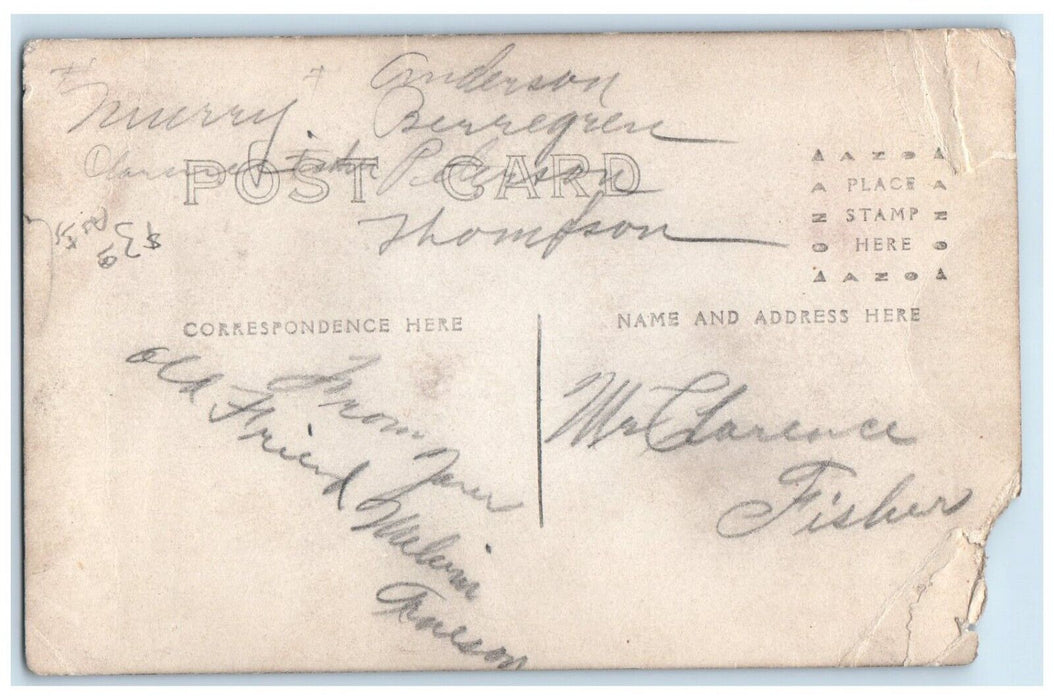 Anderson
"Murry" Berregren
Clarence Fisher Pederson
POST CARD
Thompson
AZO
PLACE
STAMP
HERE
AZO
CORRESPONDENCE HERE
NAME AND ADDRESS HERE
From Your
Old Friend Melvin
Arneson
Mr Clarence
Fisher